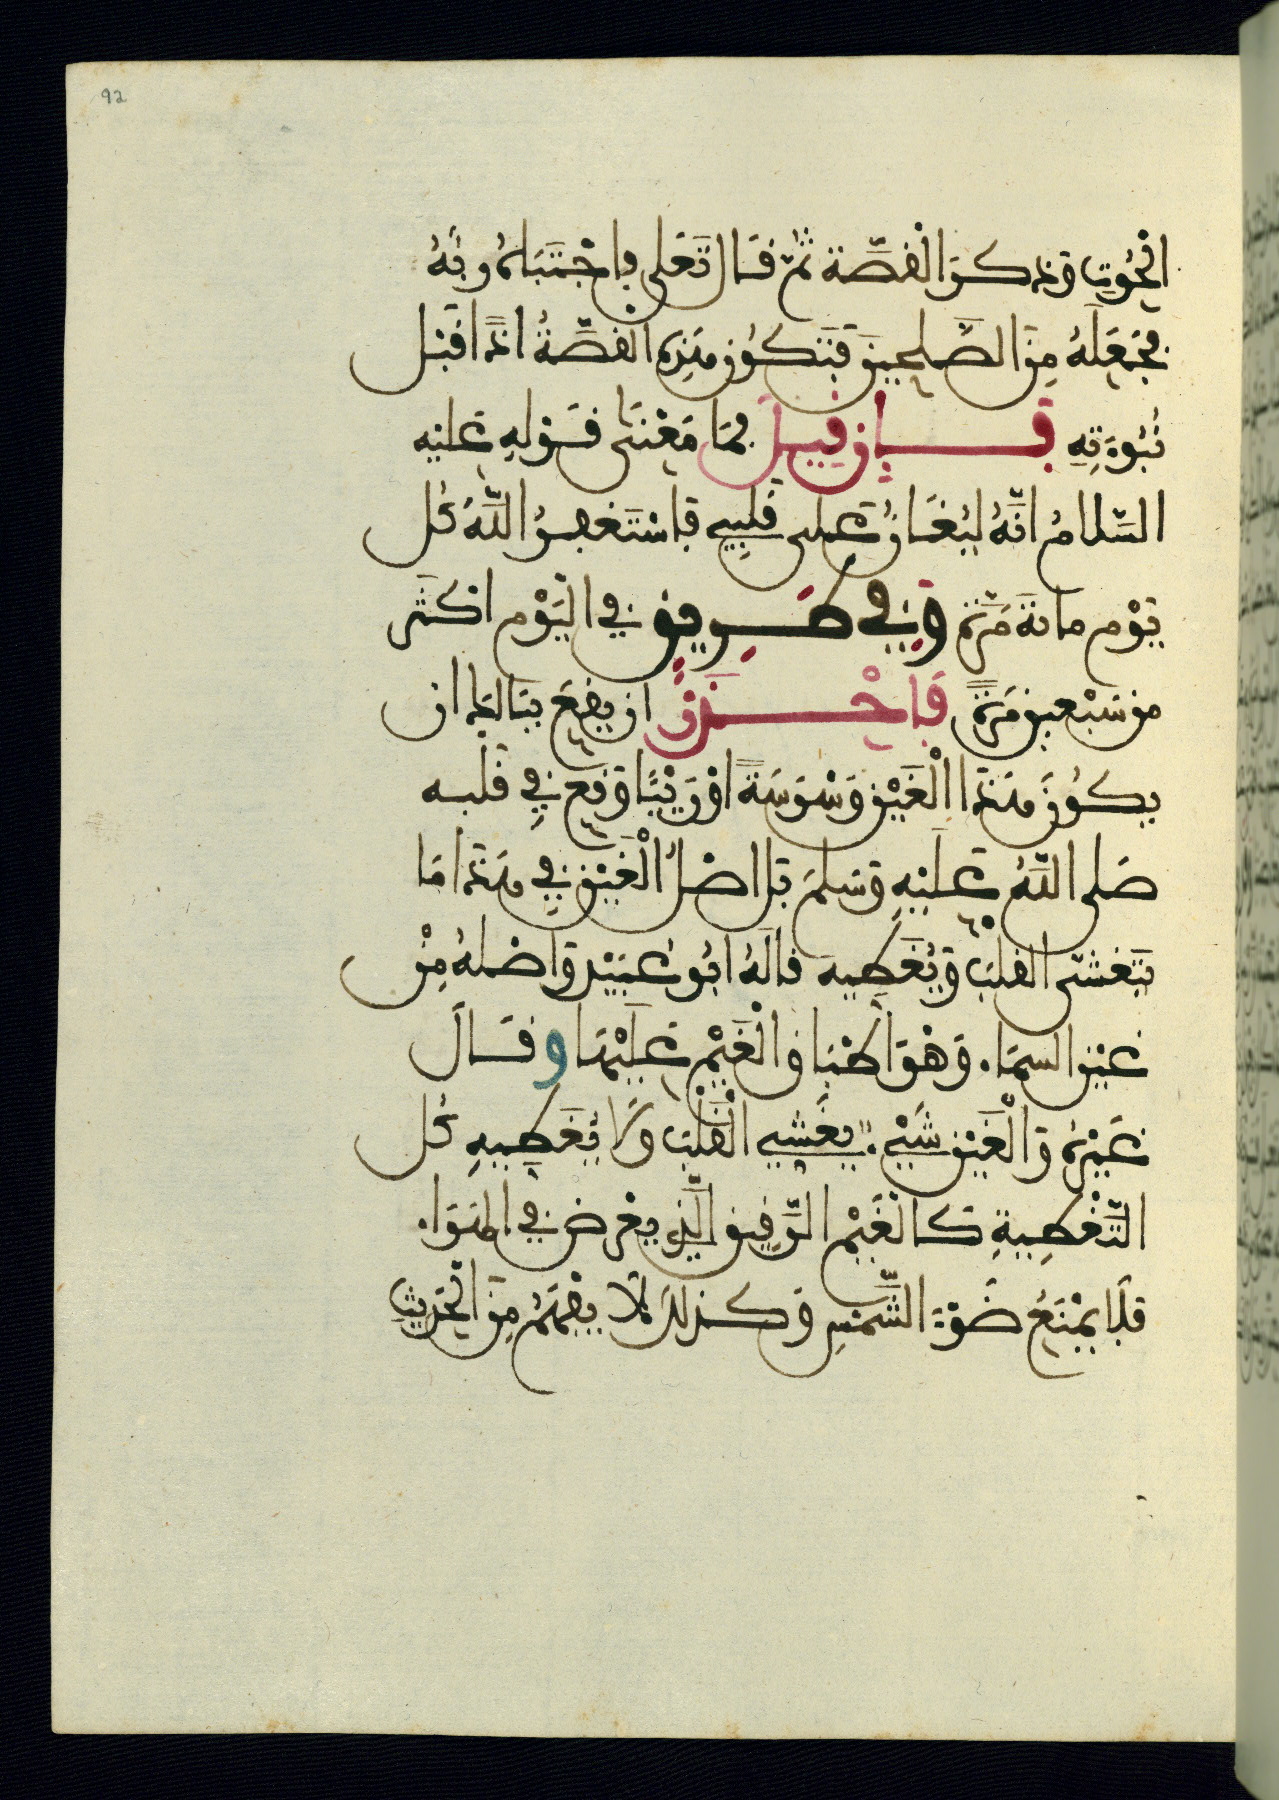 92
الْحُوتِ وَذكرَ الْقصَّة ثُمّ قَال تَعَلى فاجْتَبَاهُ رَبُّهُ
فَجَعَلَهُ مِنَ الصَّلِحِينَ فَتَكُون هَذِهِ القصَّةُ اذًا قَبْل
نُبُوءَتِهِ فَإن قِيلَ فمَا مَعْنَى قَوْلِهِ عَليْه
السَّلامُ انَّهُ ليُغَانُ عَلى قَلْبِي فَاسْتَغفِرُ اللَّهَ كُل
يَوْم مائةَ مَرّة وَفي طَرِيق في الْيَوْم اكْثَر
من سَبْعين مَرّةً فَاحْذَرْ ان يقعَ ببَالكَ ان
يكُونَ هَذا الْغَيْن وَسْوَسَةً اوْ رَيْبًا وَقع فِي قَلْبه
صَلى اللَّهُ عَلَيْهِ وَسَلمَ بَل اصْلُ الْغَيْن فِي هَذا مَا
يَتغشّى القلبَ وَيُغَطيه قالَهُ ابُو عُبَيْد وَاصْلهُ مِنْ
غيْن السمَاء وَهْوَ اطْبَاق الْغَيْم عَليْهَا وقَالَ
غَيْرُه وَالْغَيْن شَيْء يغَشِي الْقَلْبَ ولا يُغَطِيهِ كُل
التَّغْطِيةِ كالْغَيْم الرَّقِيق الّذِي يعْرض في الهَوَاء
فلَا يمْنَعُ ضَوْءَ الشَّمْسِ وَكذلكَ لَا يفْهَمُ مِنَ الْحَديثِ